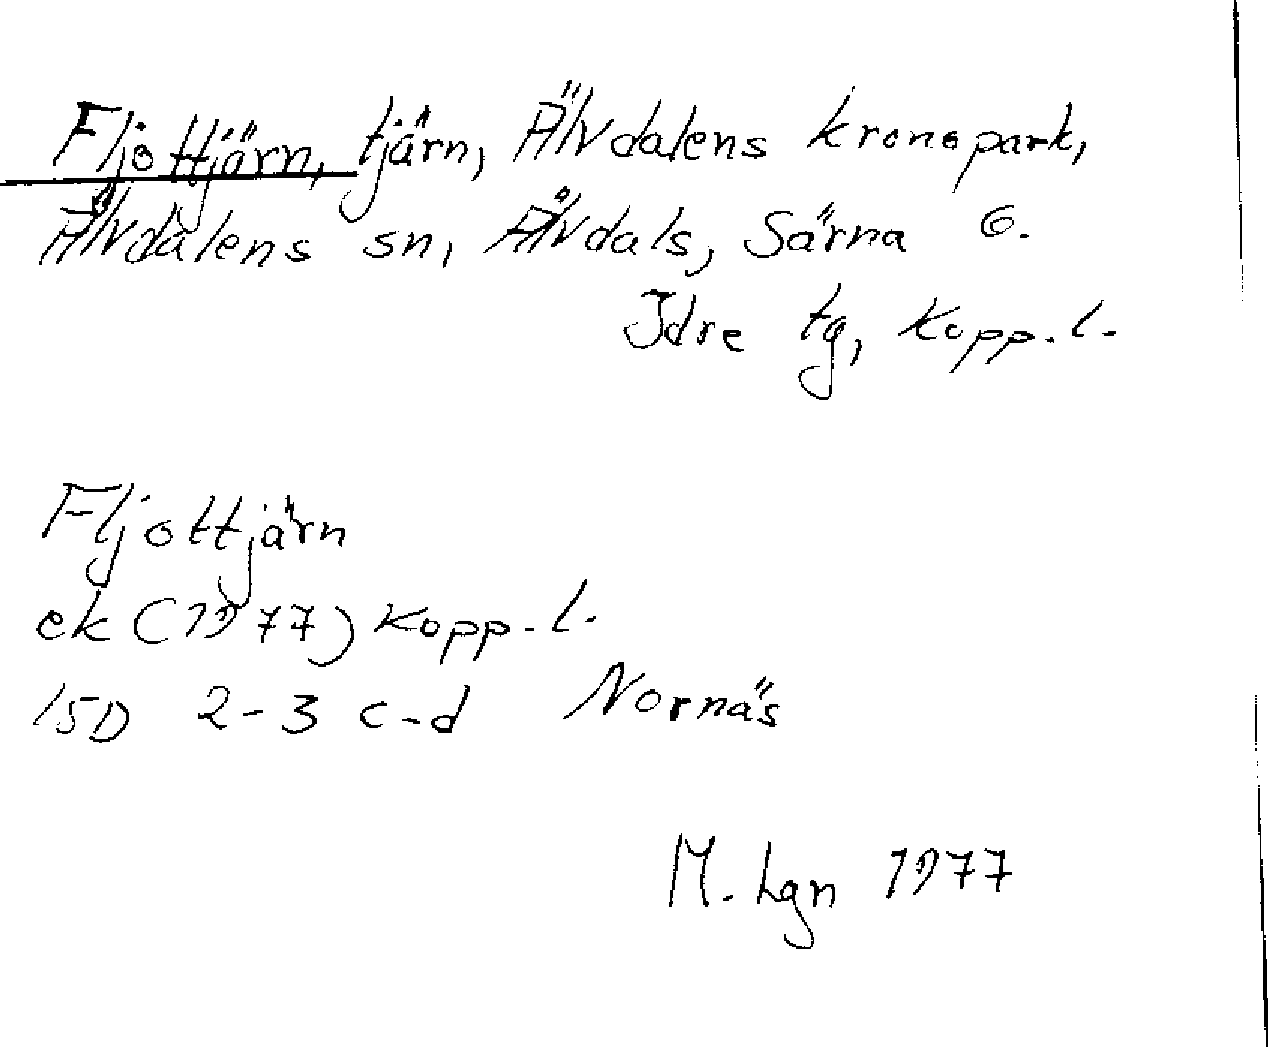 Fljottjärn, tjärn, Älvdalens kronopark,
Älvdalens sn, Älvdals, Särna o.
Idre tg, Kopp.l.
Fljottjärn
ek (1977) Kopp.l.
15D 2-3 c-d Nornäs
M. Lgn 1977